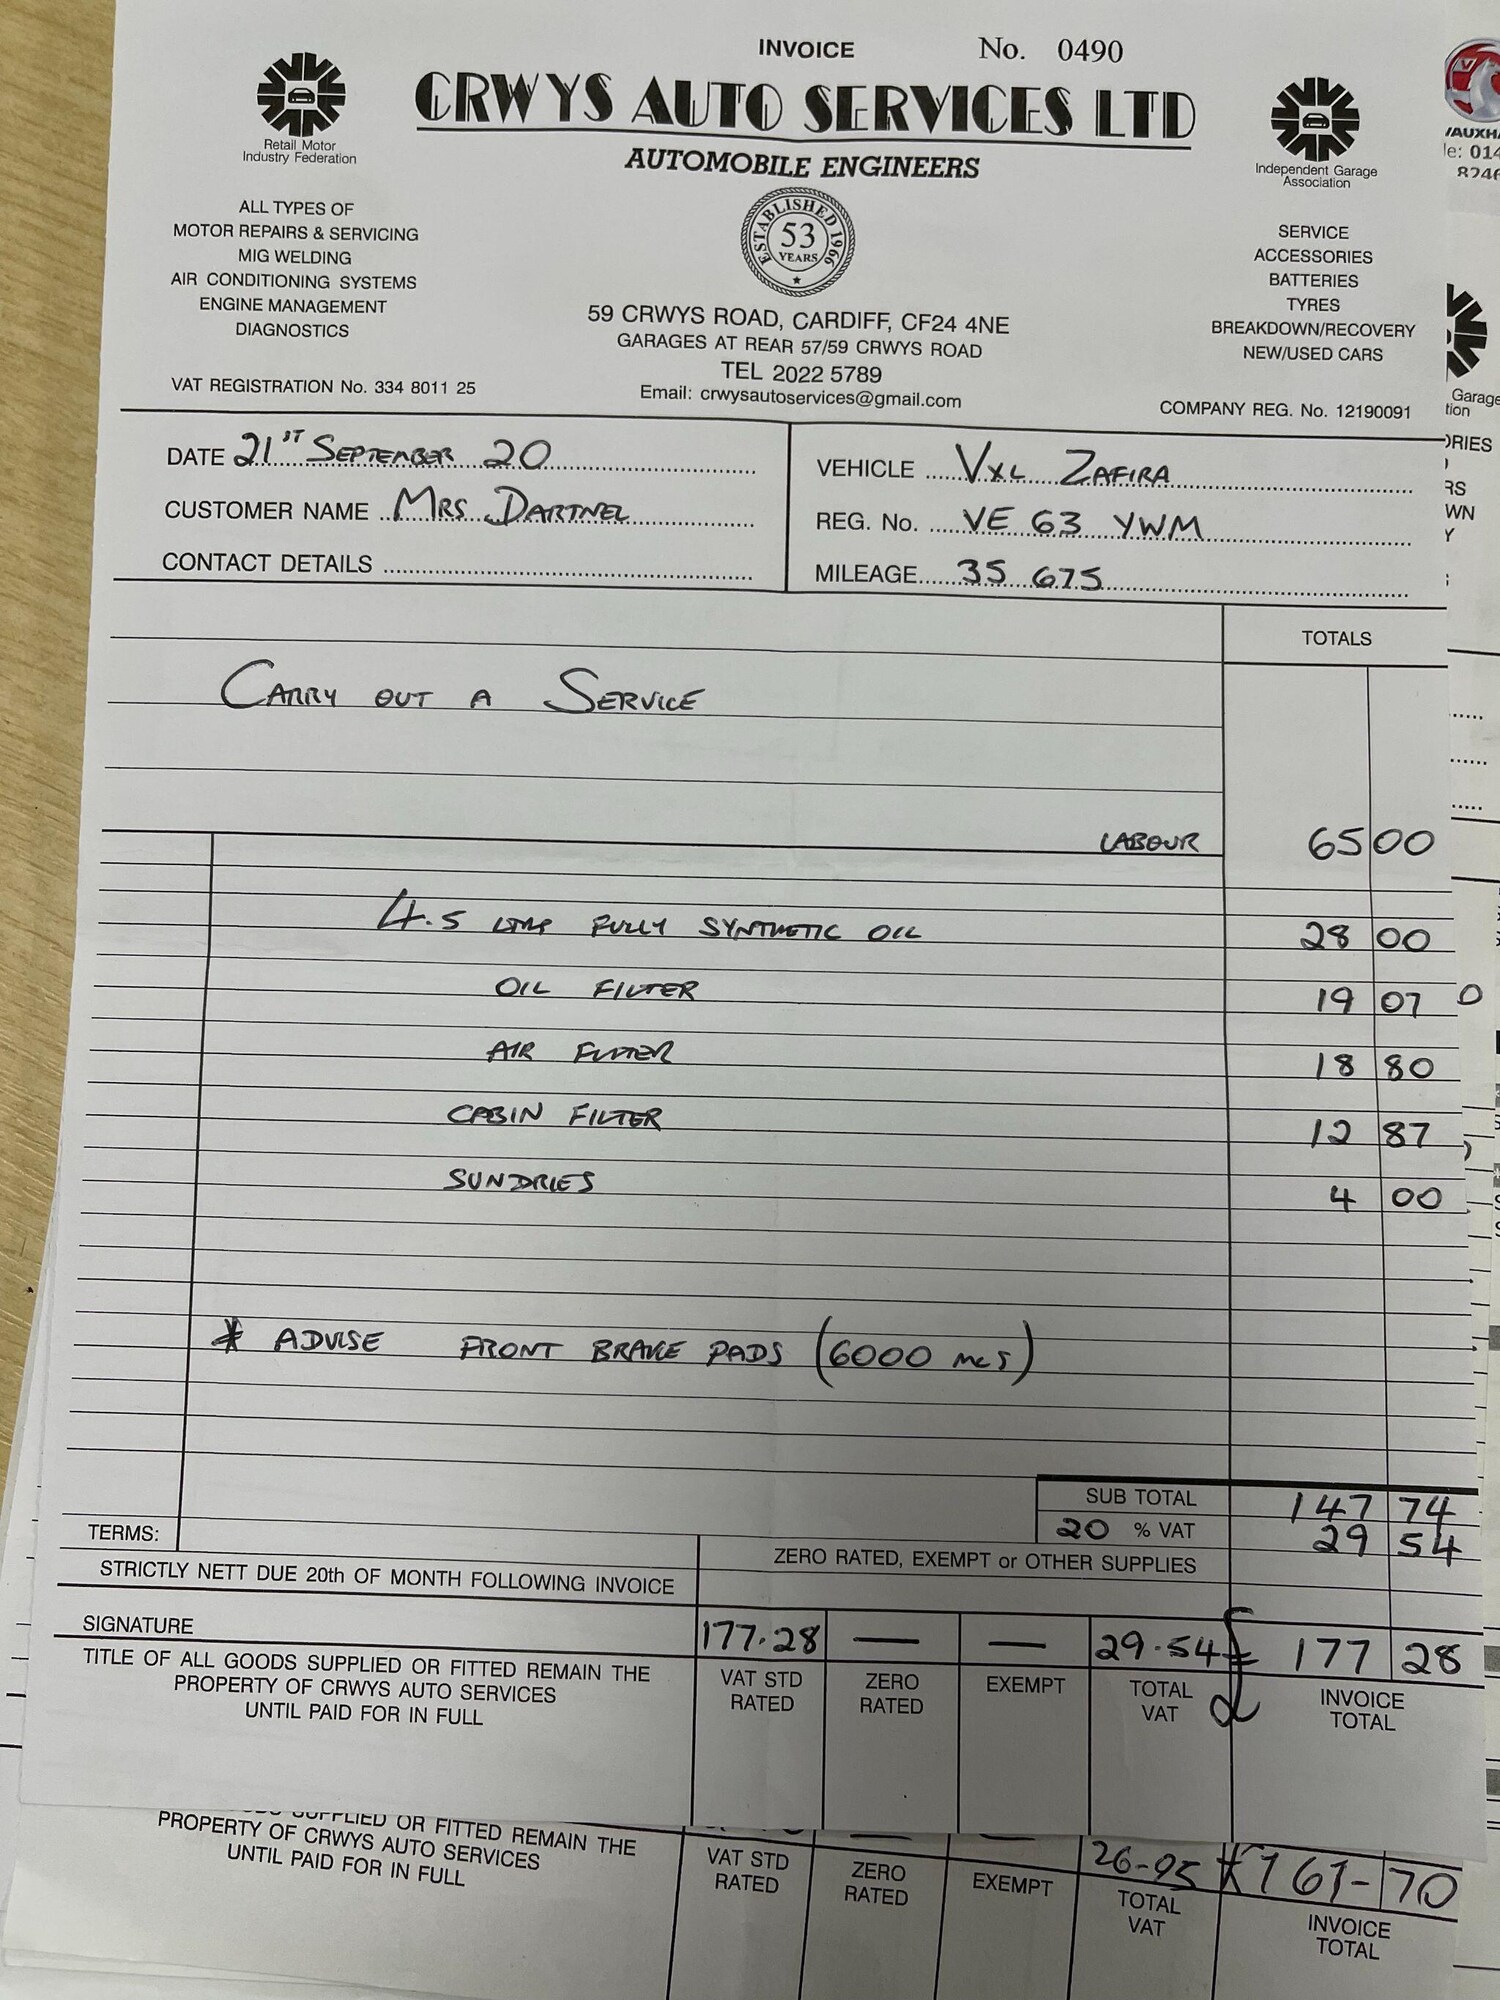 INVOICE No. 0490
CRWYS AUTO SERVICES LTD
AUTOMOBILE ENGINEERS
Retail Motor
Industry Federation
Independent Garage
Association
ESTABLISHED 1966
53
YEARS
ALL TYPES OF
MOTOR REPAIRS & SERVICING
MIG WELDING
AIR CONDITIONING SYSTEMS
ENGINE MANAGEMENT
DIAGNOSTICS
VAT REGISTRATION No. 334 8011 25
59 CRWYS ROAD, CARDIFF, CF24 4NE
GARAGES AT REAR 57/59 CRWYS ROAD
TEL 2022 5789
Email: crwysautoservices@gmail.com
SERVICE
ACCESSORIES
BATTERIES
TYRES
BREAKDOWN/RECOVERY
NEW/USED CARS
COMPANY REG. No. 12190091
DATE 21ST SEPTEMBER 20
CUSTOMER NAME MRS DARTNEL
CONTACT DETAILS
VEHICLE VXL ZAFIRA
REG. No. VE 63 YWM
MILEAGE 35 675
TOTALS
CARRY OUT A SERVICE
LABOUR 65 00
4.5 LTRS FULLY SYNTHETIC OIL 28 00
OIL FILTER 19 07
AIR FILTER 18 80
CABIN FILTER 12 87
SUNDRIES 4 00
* ADVISE FRONT BRAKE PADS (6000 MLS)
SUB TOTAL 147 74
20 % VAT 29 54
TERMS:
ZERO RATED, EXEMPT or OTHER SUPPLIES
STRICTLY NETT DUE 20th OF MONTH FOLLOWING INVOICE
SIGNATURE
177.28 — — 29.54 £ 177 28
TITLE OF ALL GOODS SUPPLIED OR FITTED REMAIN THE
PROPERTY OF CRWYS AUTO SERVICES
UNTIL PAID FOR IN FULL
VAT STD
RATED
ZERO
RATED
EXEMPT
TOTAL
VAT
INVOICE
TOTAL
SUPPLIED OR FITTED REMAIN THE
PROPERTY OF CRWYS AUTO SERVICES
UNTIL PAID FOR IN FULL
26-95 £161-70
VAT STD
RATED
ZERO
RATED
EXEMPT
TOTAL
VAT
INVOICE
TOTAL